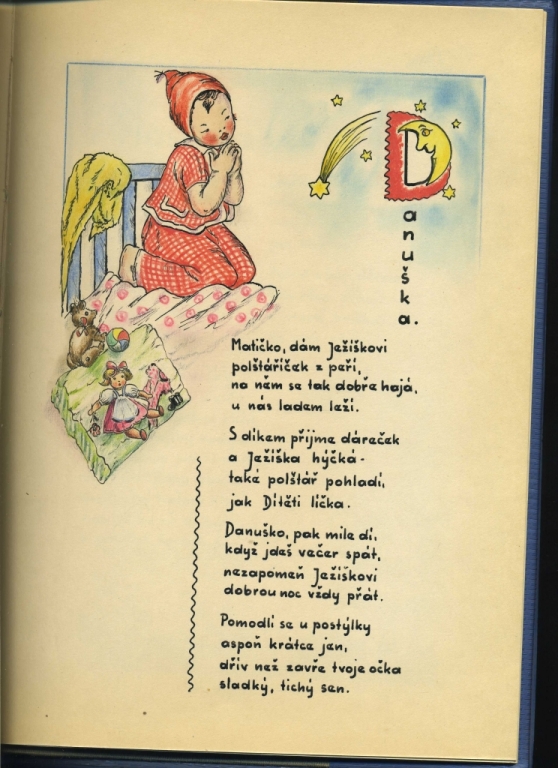 Danuška.
Matičko, dám Ježíškovi
polštáříček z peří,
na něm se tak dobře hajá,
u nás ladem leží.
S díkem přijme dáreček
a Ježíška hýčká-
také polštář pohladí,
jak Dítěti líčka.
Danuško, pak mile dí,
když jdeš večer spát,
nezapomeň Ježíškovi
dobrou noc vždy přát.
Pomodli se u postýlky
aspoň krátce jen,
dřív než zavře tvoje očka
sladký, tichý sen.